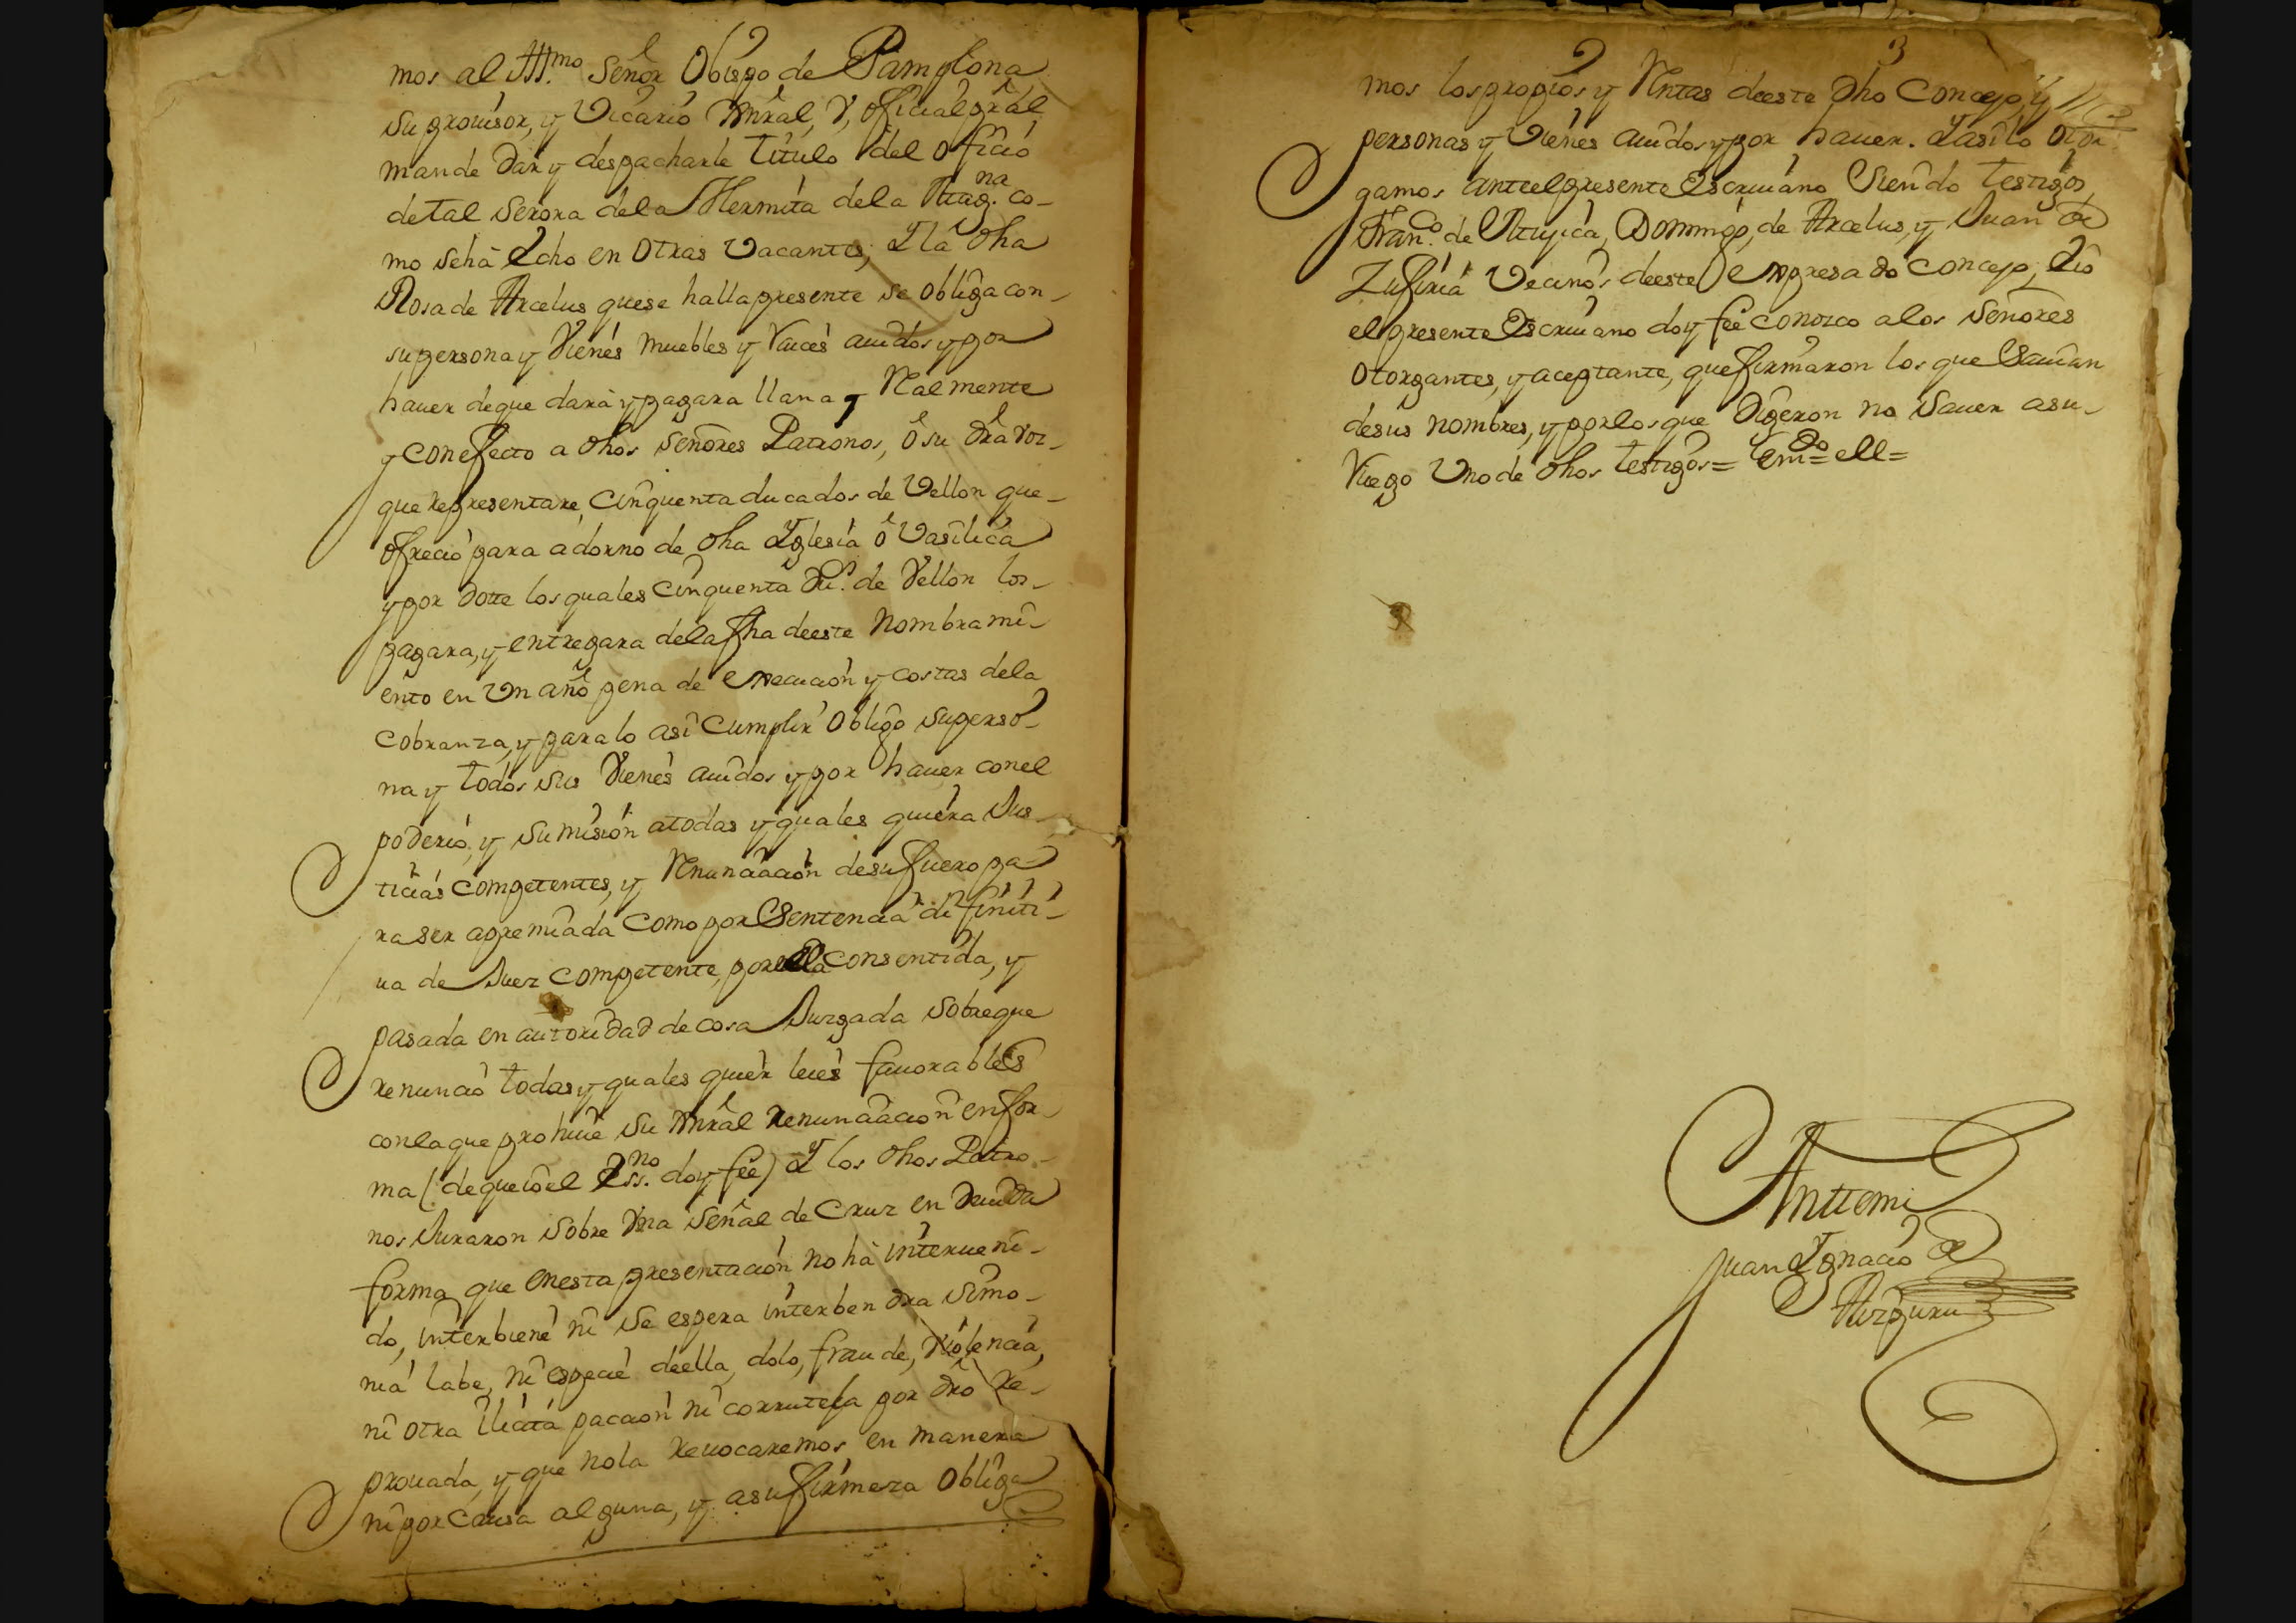 mos al Ill.mo Señor Obispo de Pamplona
su provisor, y Vicario Genral, y, oficial prãl
mande dar y despacharle titulo del oficio
de tal serora de la Hermita de la Mag.na co-
mo se hà Echo en otras vacantes, Y la dha
Rosa de Arcelus que se halla presente se obliga con-
su persona y Vienes muebles y raices auidos y por
hauer de que darà y pagara llana y Realmente
y con efecto a dhos Señores Patronos, ô su dra voz-
que representare, cinquenta ducados de Vellon que-
ofreciò para adorno de dha Yglesia ô Vasilica
y por dotte los quales cinquenta du.s de Vellon los-
pagara, y entregara de la fha de este Nombrami-
ento en Un año pena de execucion y costas de la
cobranza, y para lo asi cumplir obligo su perso-
na y todos sus Vienes auidos y por hauer con el
poderio, y sumision a todas y quales quiera Jus-
ticias competentes, y Renunciacion de su fuero pa-
ra ser apremiada como por Sentencia difiniti-
ua de Juez competente, por ella consentida, y
pasada en autoridad de cosa Juzgada sobre que
renunciò todas y quales quier leies fauorables
con la que prohiue su Genral renunciacion en for-
ma (de que io el Ess.no doy fee) Y los dhos Patro-
nos Juraron sobre Vna señal de Cruz en deuida
forma que en esta presentacion no hà interueni-
do, interbiene ni se espera interbendra simo-
nia labe, ni especie de ella, dolo, fraude, violencia,
ni otra ilicita paccion ni corrutela por drõ re-
prouada, y que no la reuocaremos en manera
ni por causa alguna, y a su firmeza obliga
3
mos los propios y Rentas de este dho Concejo, y
personas y Vienes auidos y por hauer. Y asi lo otor
gamos ante el presente Escriuano Siendo testigos
Fran.co de Muxica, Domingo, de Arcelus, y Juan de
Zufiria Vecinos de este expresado concejo, E io
el presente Escriuano doy fee conozco a los Señores
otorgantes, y aceptante, que firmaron los que Sauian
de sus nombres, y por los que dixeron no sauer a su-
Ruego Uno de dhos testigos= Em.do= ell=
Anttemi
Juan Ygnacio de
Aizpuru